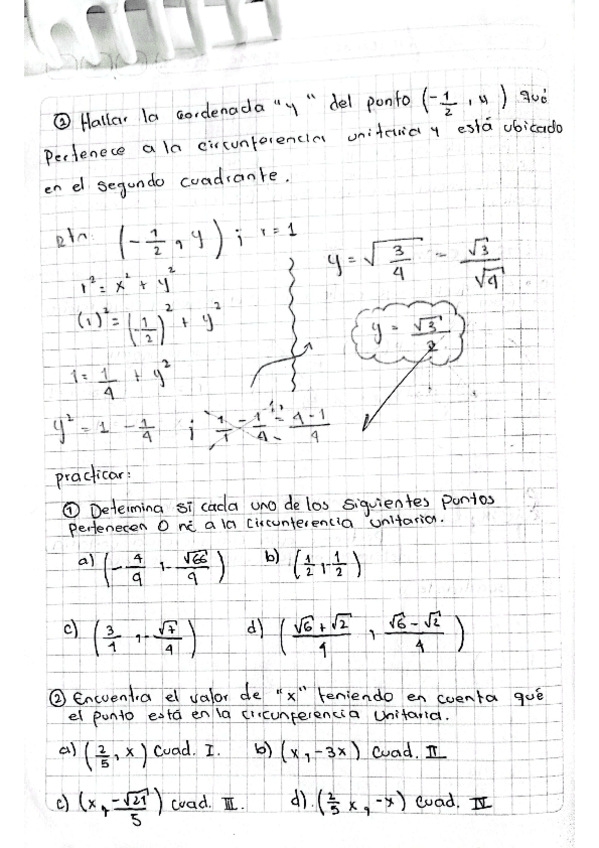 ② Hallar la cordenada "y" del punto (-1/2, y) qué
pertenece a la circunferencia unitaria y está ubicado
en el segundo cuadrante.
Rta: (-1/2, y) ; r = 1
r² = x² + y²
(1)² = (-1/2)² + y²
1 = 1/4 + y²
y² = 1 - 1/4 ; 1/1 - 1/4 = 4-1/4
y = √3/4 = √3/√4
y = √3/2
practicar:
① Determina si cada uno de los siguientes puntos
pertenecen o nó a la circunferencia unitaria.
a) (-4/9, -√66/9) b) (1/2, -1/2)
c) (3/4, -√7/4) d) (√6+√2/4, √6-√2/4)
② Encuentra el valor de "x" teniendo en cuenta qué
el punto está en la circunferencia unitaria.
a) (2/5, x) cuad. I. b) (x, -3x) cuad. II
c) (x, -√21/5) cuad. III. d) (2/5 x, -x) cuad. IV